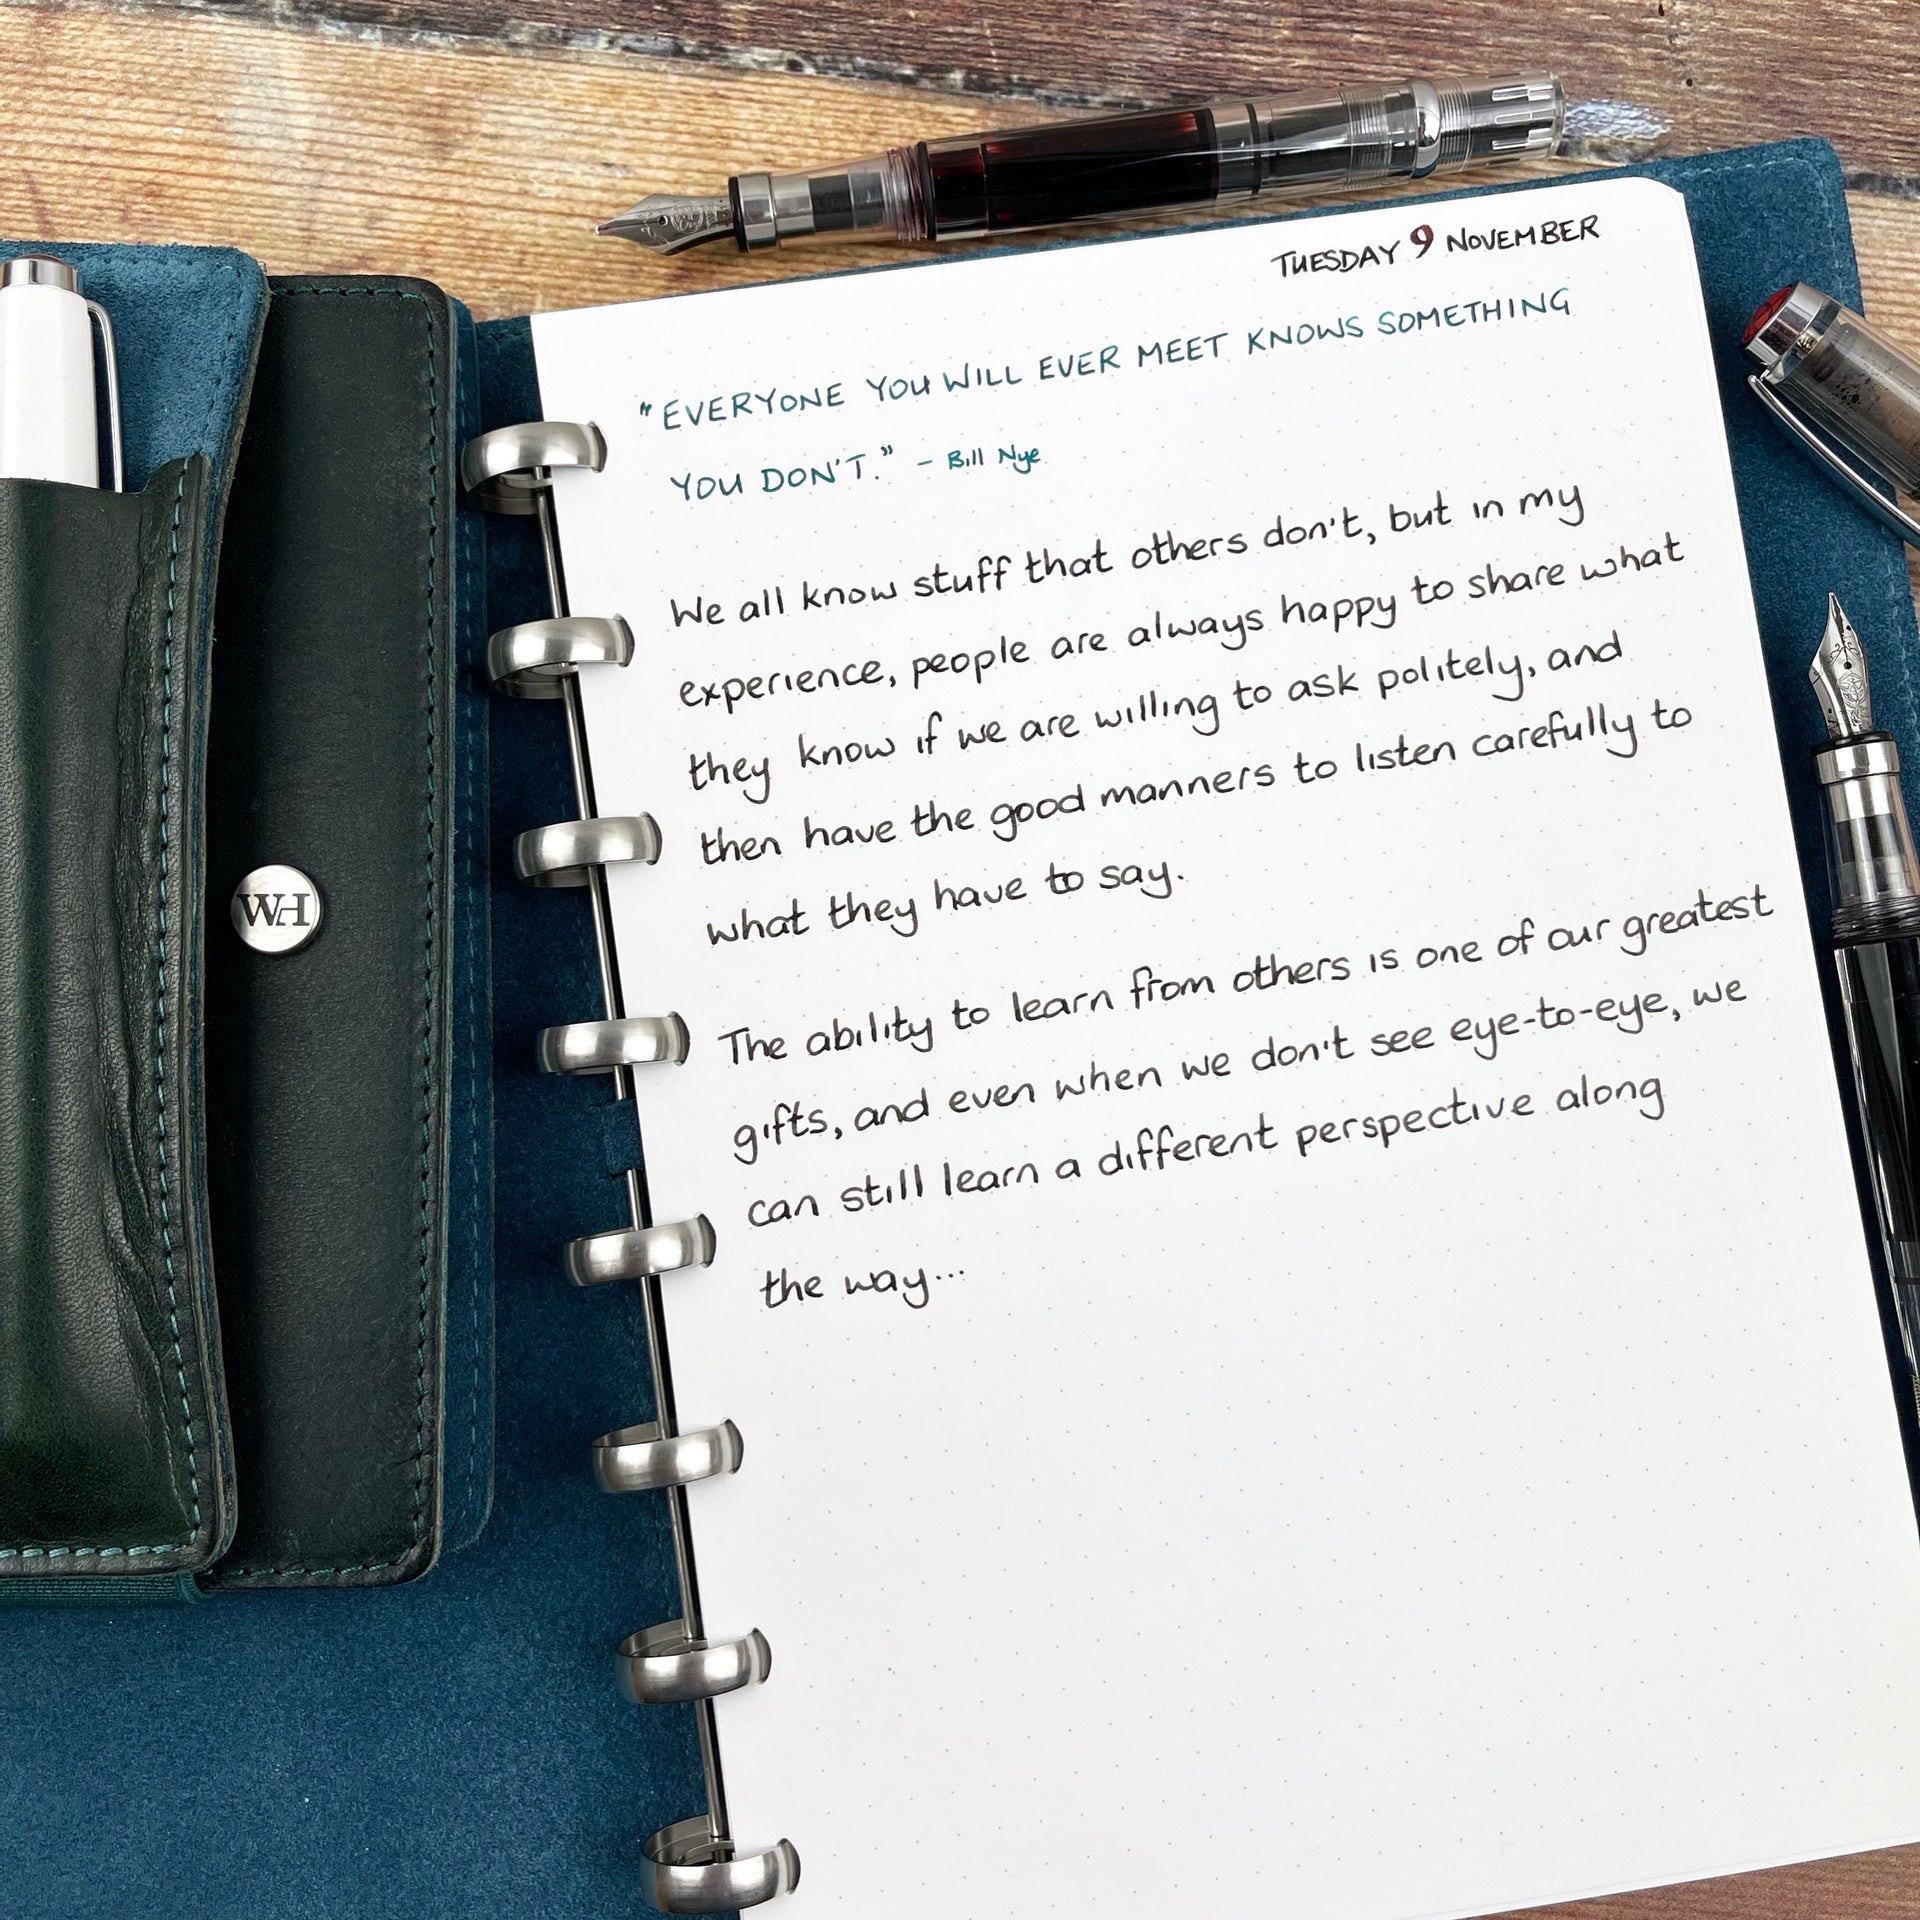 TUESDAY 9 NOVEMBER
"EVERYONE YOU WILL EVER MEET KNOWS SOMETHING
YOU DON'T." - Bill Nye
We all know stuff that others don't, but in my
experience, people are always happy to share what
they know if we are willing to ask politely, and
then have the good manners to listen carefully to
what they have to say.
The ability to learn from others is one of our greatest
gifts, and even when we don't see eye-to-eye, we
can still learn a different perspective along
the way...
WH